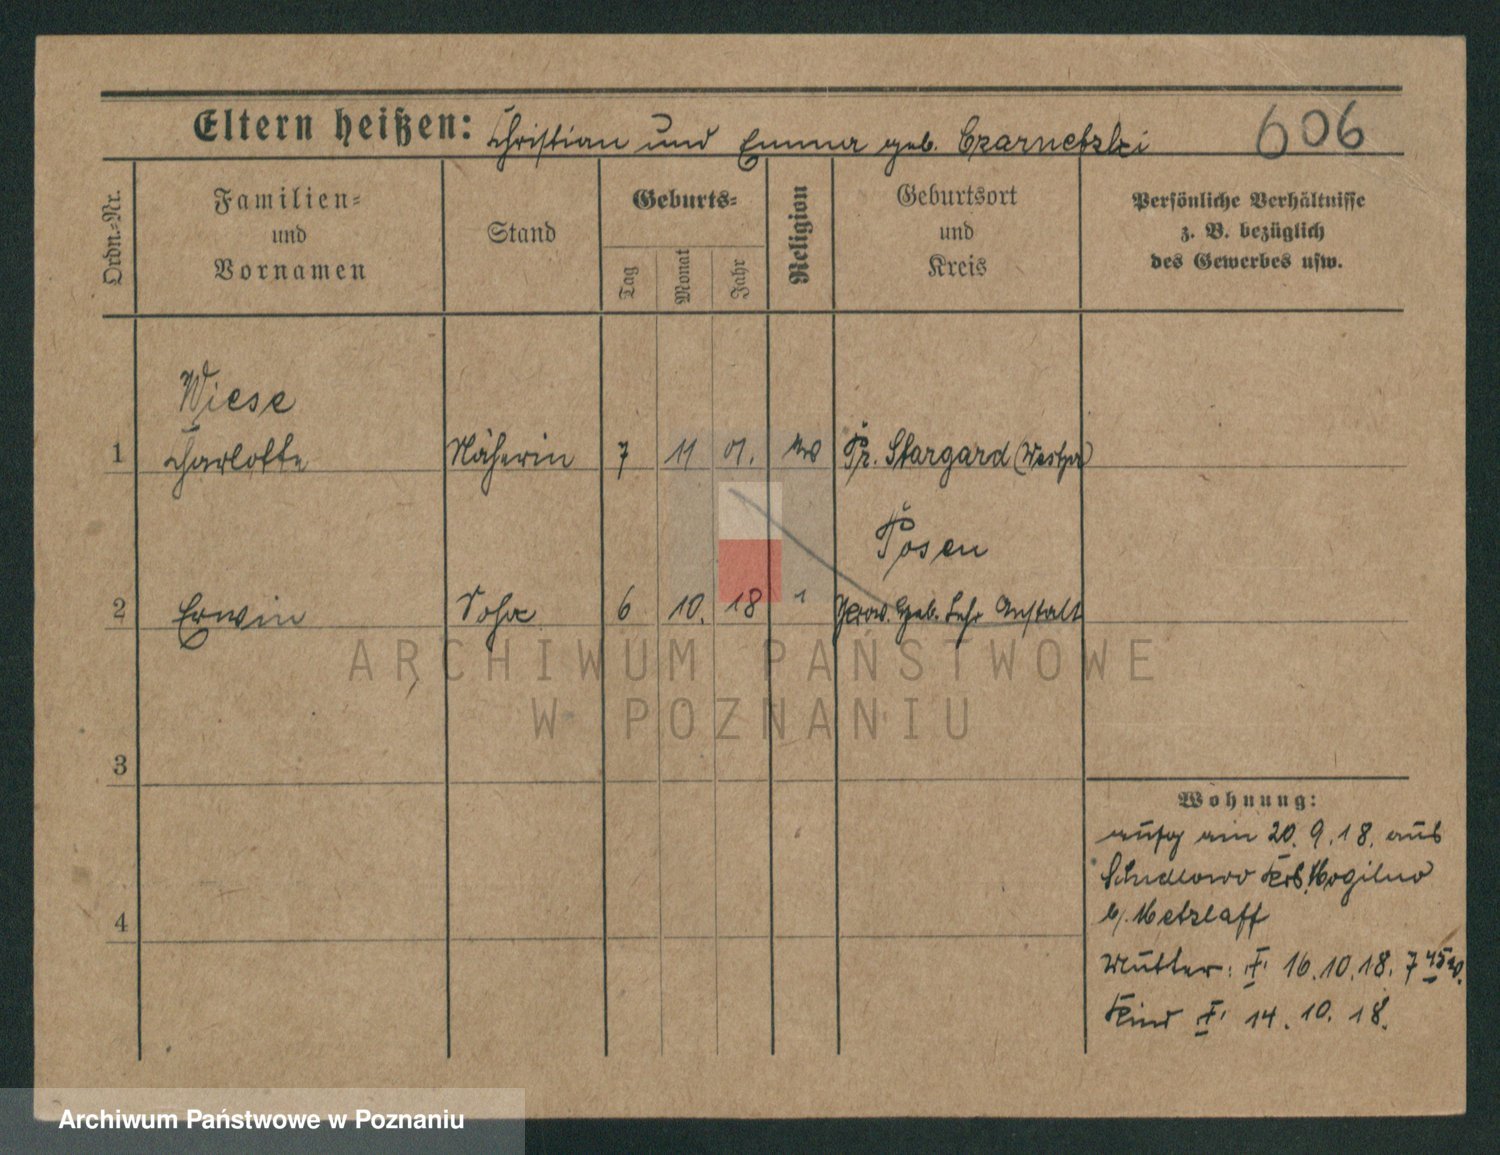 Eltern heißen: Christian und Emma geb. Czarnetzki 606
Ordn.-Nr.
Familien-
und
Vornamen
Stand
Geburts-
Tag
Monat
Jahr
Religion
Geburtsort
und
Kreis
Persönliche Verhältnisse
z. B. bezüglich
des Gewerbes usw.
Wiese
1 Charlotte Näherin 7 11 01. ev Pr. Stargard (Westpr)
Posen
2 Erwin Sohn 6 10. 18 Prov. Heb. Lehr Anstalt
3
4
Wohnung:
am 20. 9. 18. aus
Krs. Mogilno
b/. Metzlaff
Mutter: † 16. 10. 18. 7 45
Kind † 14. 10. 18.
ARCHIWUM PAŃSTWOWE
W POZNANIU
Archiwum Państwowe w Poznaniu